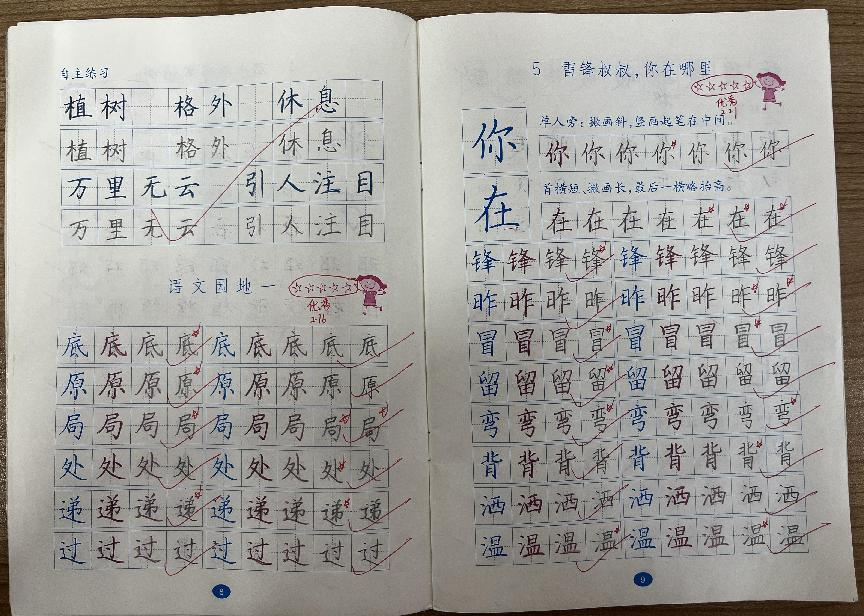 自主练习
植树 格外 休息
植树 格外 休息
万里无云 引人注目
万里无云 引人注目
语文园地一
优秀
2.16
底底底底底底底底底
原原原原原原原原原
局局局局局局局局局
处处处处处处处处处
递递递递递递递递递
过过过过过过过过过
8
5 雷锋叔叔，你在哪里
优秀
2.21
你
单人旁：撇画斜，竖画起笔在中间。
你你你你你你你
在
首横短、撇画长，最后一横略抬高。
在在在在在在在
锋锋锋锋锋锋锋锋锋
昨昨昨昨昨昨昨昨昨
冒冒冒冒冒冒冒冒冒
留留留留留留留留留
弯弯弯弯弯弯弯弯弯
背背背背背背背背背
洒洒洒洒洒洒洒洒洒
温温温温温温温温温
9